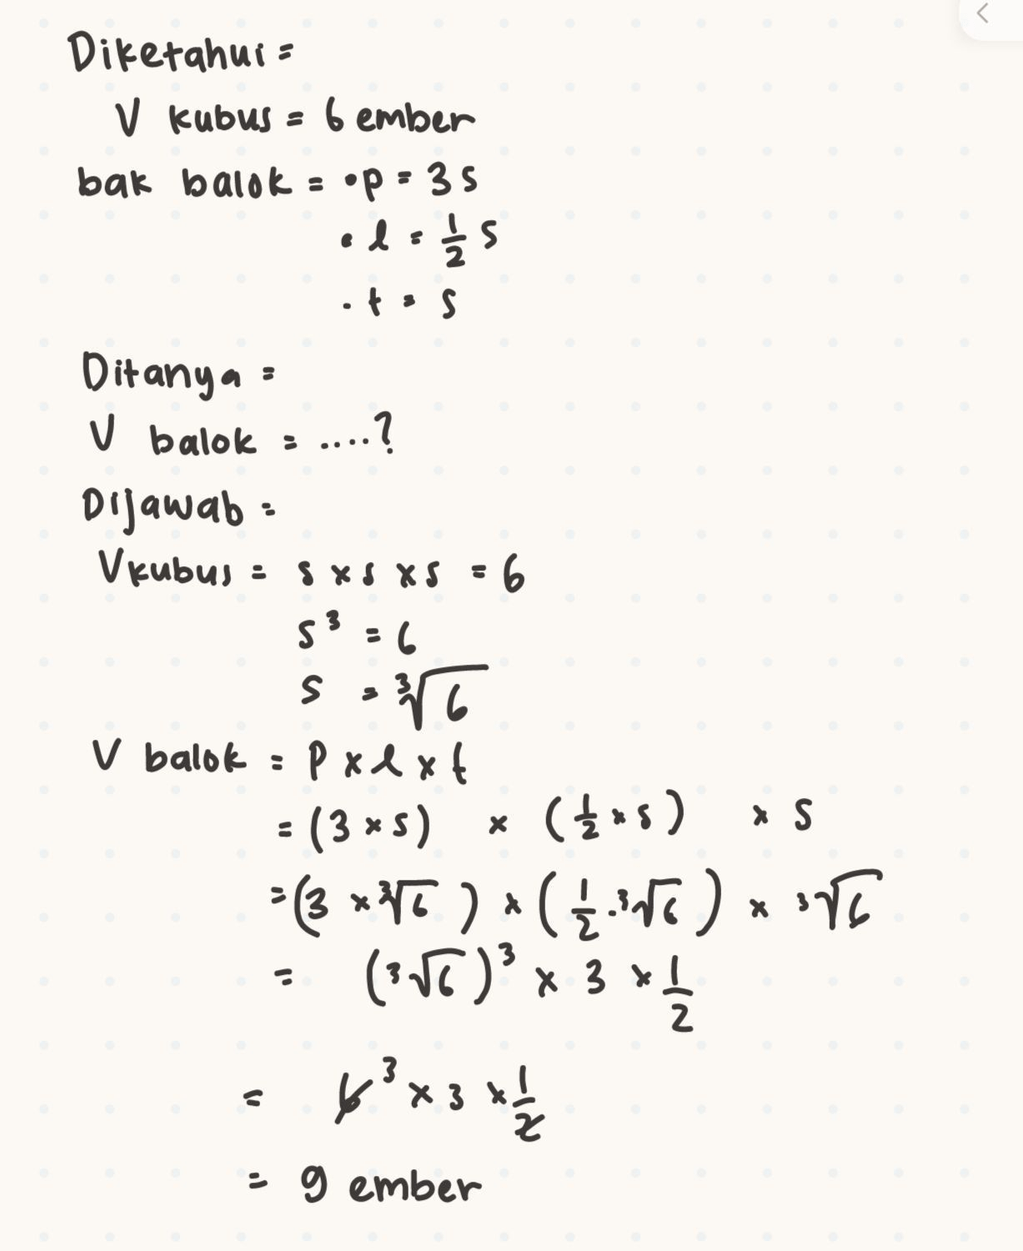 Diketahui =
V kubus = 6 ember
bak balok = • p = 3 s
• l = 1/2 s
• t = s
Ditanya =
V balok = ....?
Dijawab =
V kubus = s x s x s = 6
s³ = 6
s = ³√6
V balok = p x l x t
= (3 x s) x (1/2 x s) x s
= (3 x ³√6) x (1/2 . ³√6) x ³√6
= (³√6)³ x 3 x 1/2
= 6³ x 3 x 1/2
= 9 ember